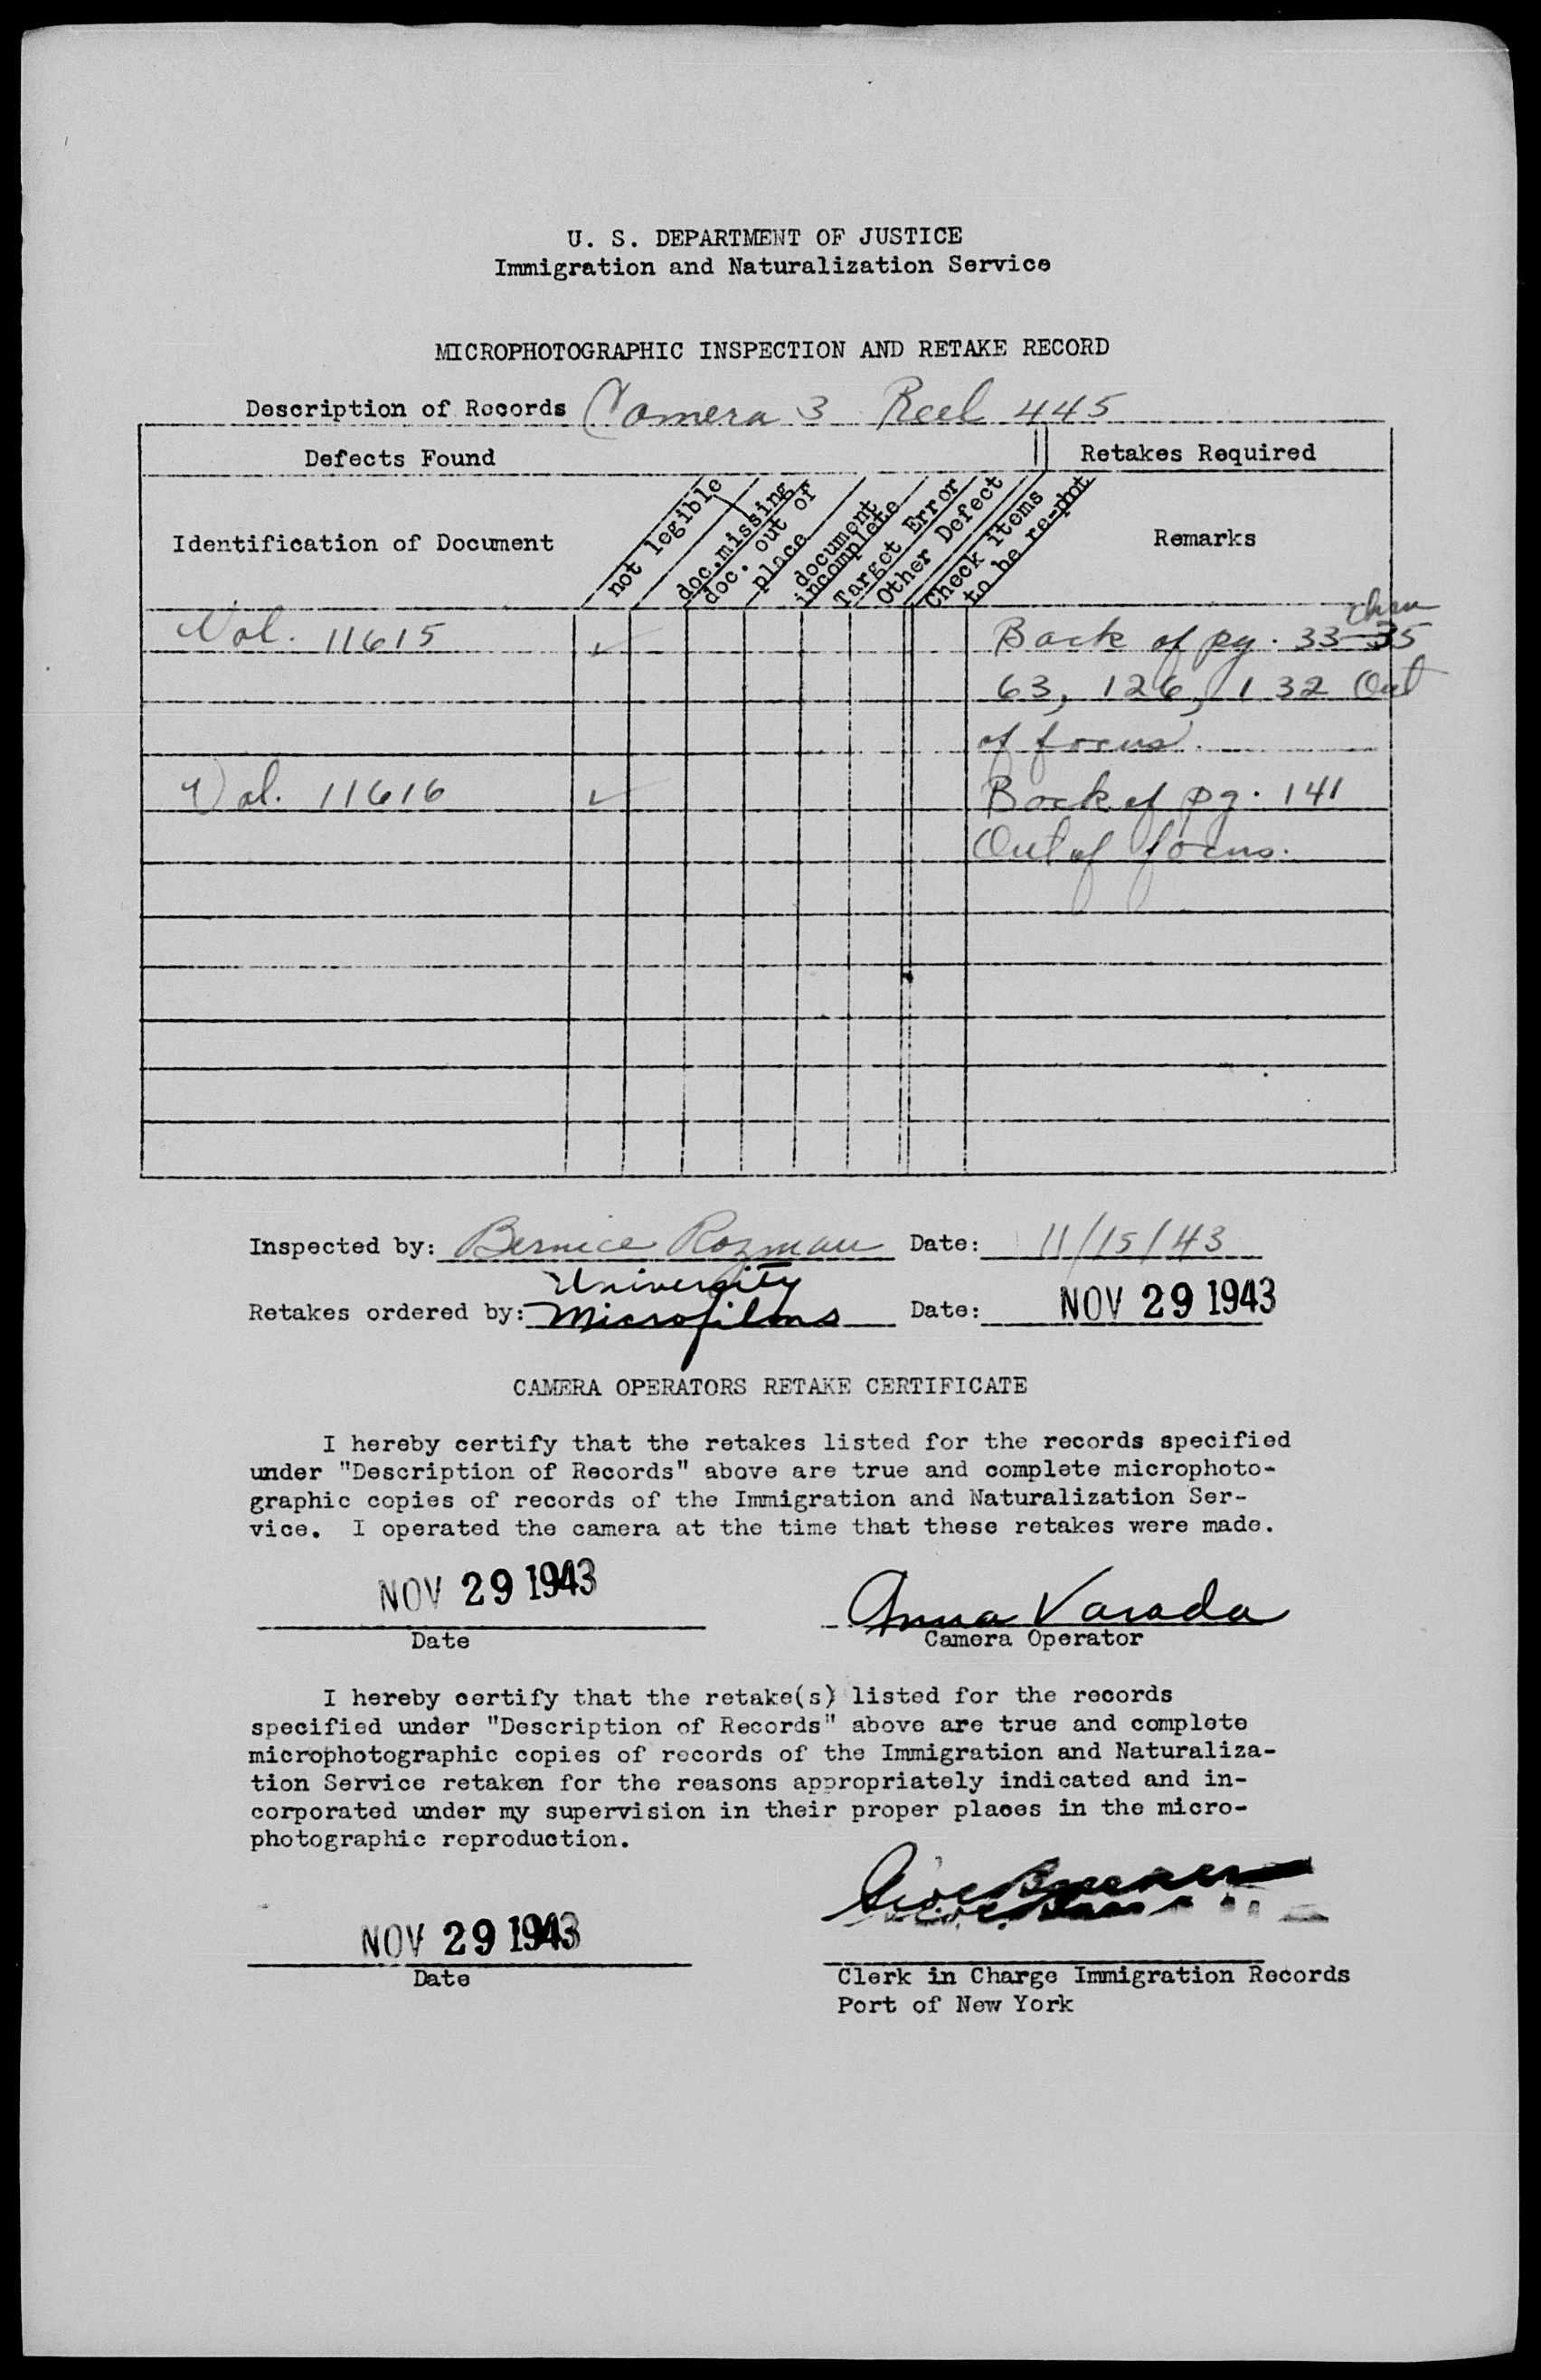 U. S. DEPARTMENT OF JUSTICE
Immigration and Naturalization Service
MICROPHOTOGRAPHIC INSPECTION AND RETAKE RECORD
Description of Records Camera 3 Reel 445
Defects Found
Retakes Required
Identification of Document
not legible
doc. missing
doc. out of
place
document
incomplete
Target Error
Other Defect
Check items
to be re-phot
Remarks
Vol. 11615 ✓ Back of pg. 33-35
63, 126, 132 Out
of focus.
Vol. 11616 ✓ Back of pg. 141
Out of focus.
Inspected by: Bernice Rozman Date: 11/15/43
University
Retakes ordered by: Microfilms Date: NOV 29 1943
CAMERA OPERATORS RETAKE CERTIFICATE
I hereby certify that the retakes listed for the records specified
under "Description of Records" above are true and complete microphoto-
graphic copies of records of the Immigration and Naturalization Ser-
vice. I operated the camera at the time that these retakes were made.
NOV 29 1943 Anna Varada
Date Camera Operator
I hereby certify that the retake(s) listed for the records
specified under "Description of Records" above are true and complete
microphotographic copies of records of the Immigration and Naturaliza-
tion Service retaken for the reasons appropriately indicated and in-
corporated under my supervision in their proper places in the micro-
photographic reproduction.
NOV 29 1943
Date Clerk in Charge Immigration Records
Port of New York